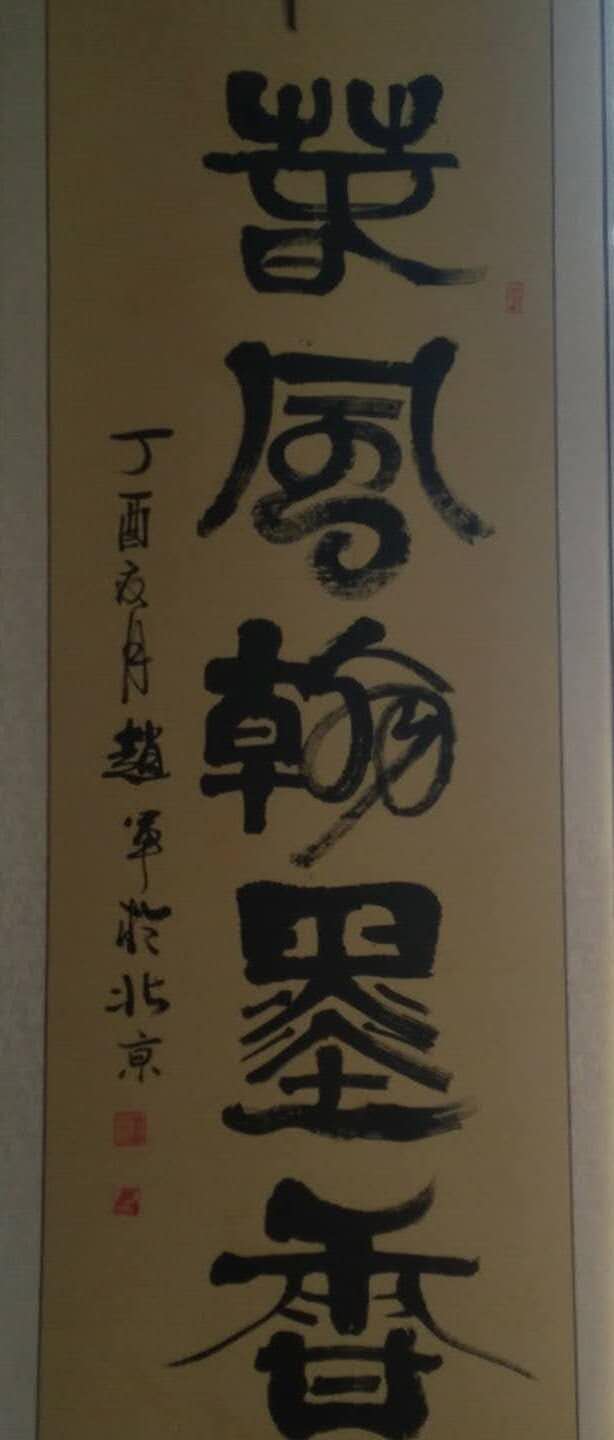 春風翰墨香
丁酉夏月趙軍於北京